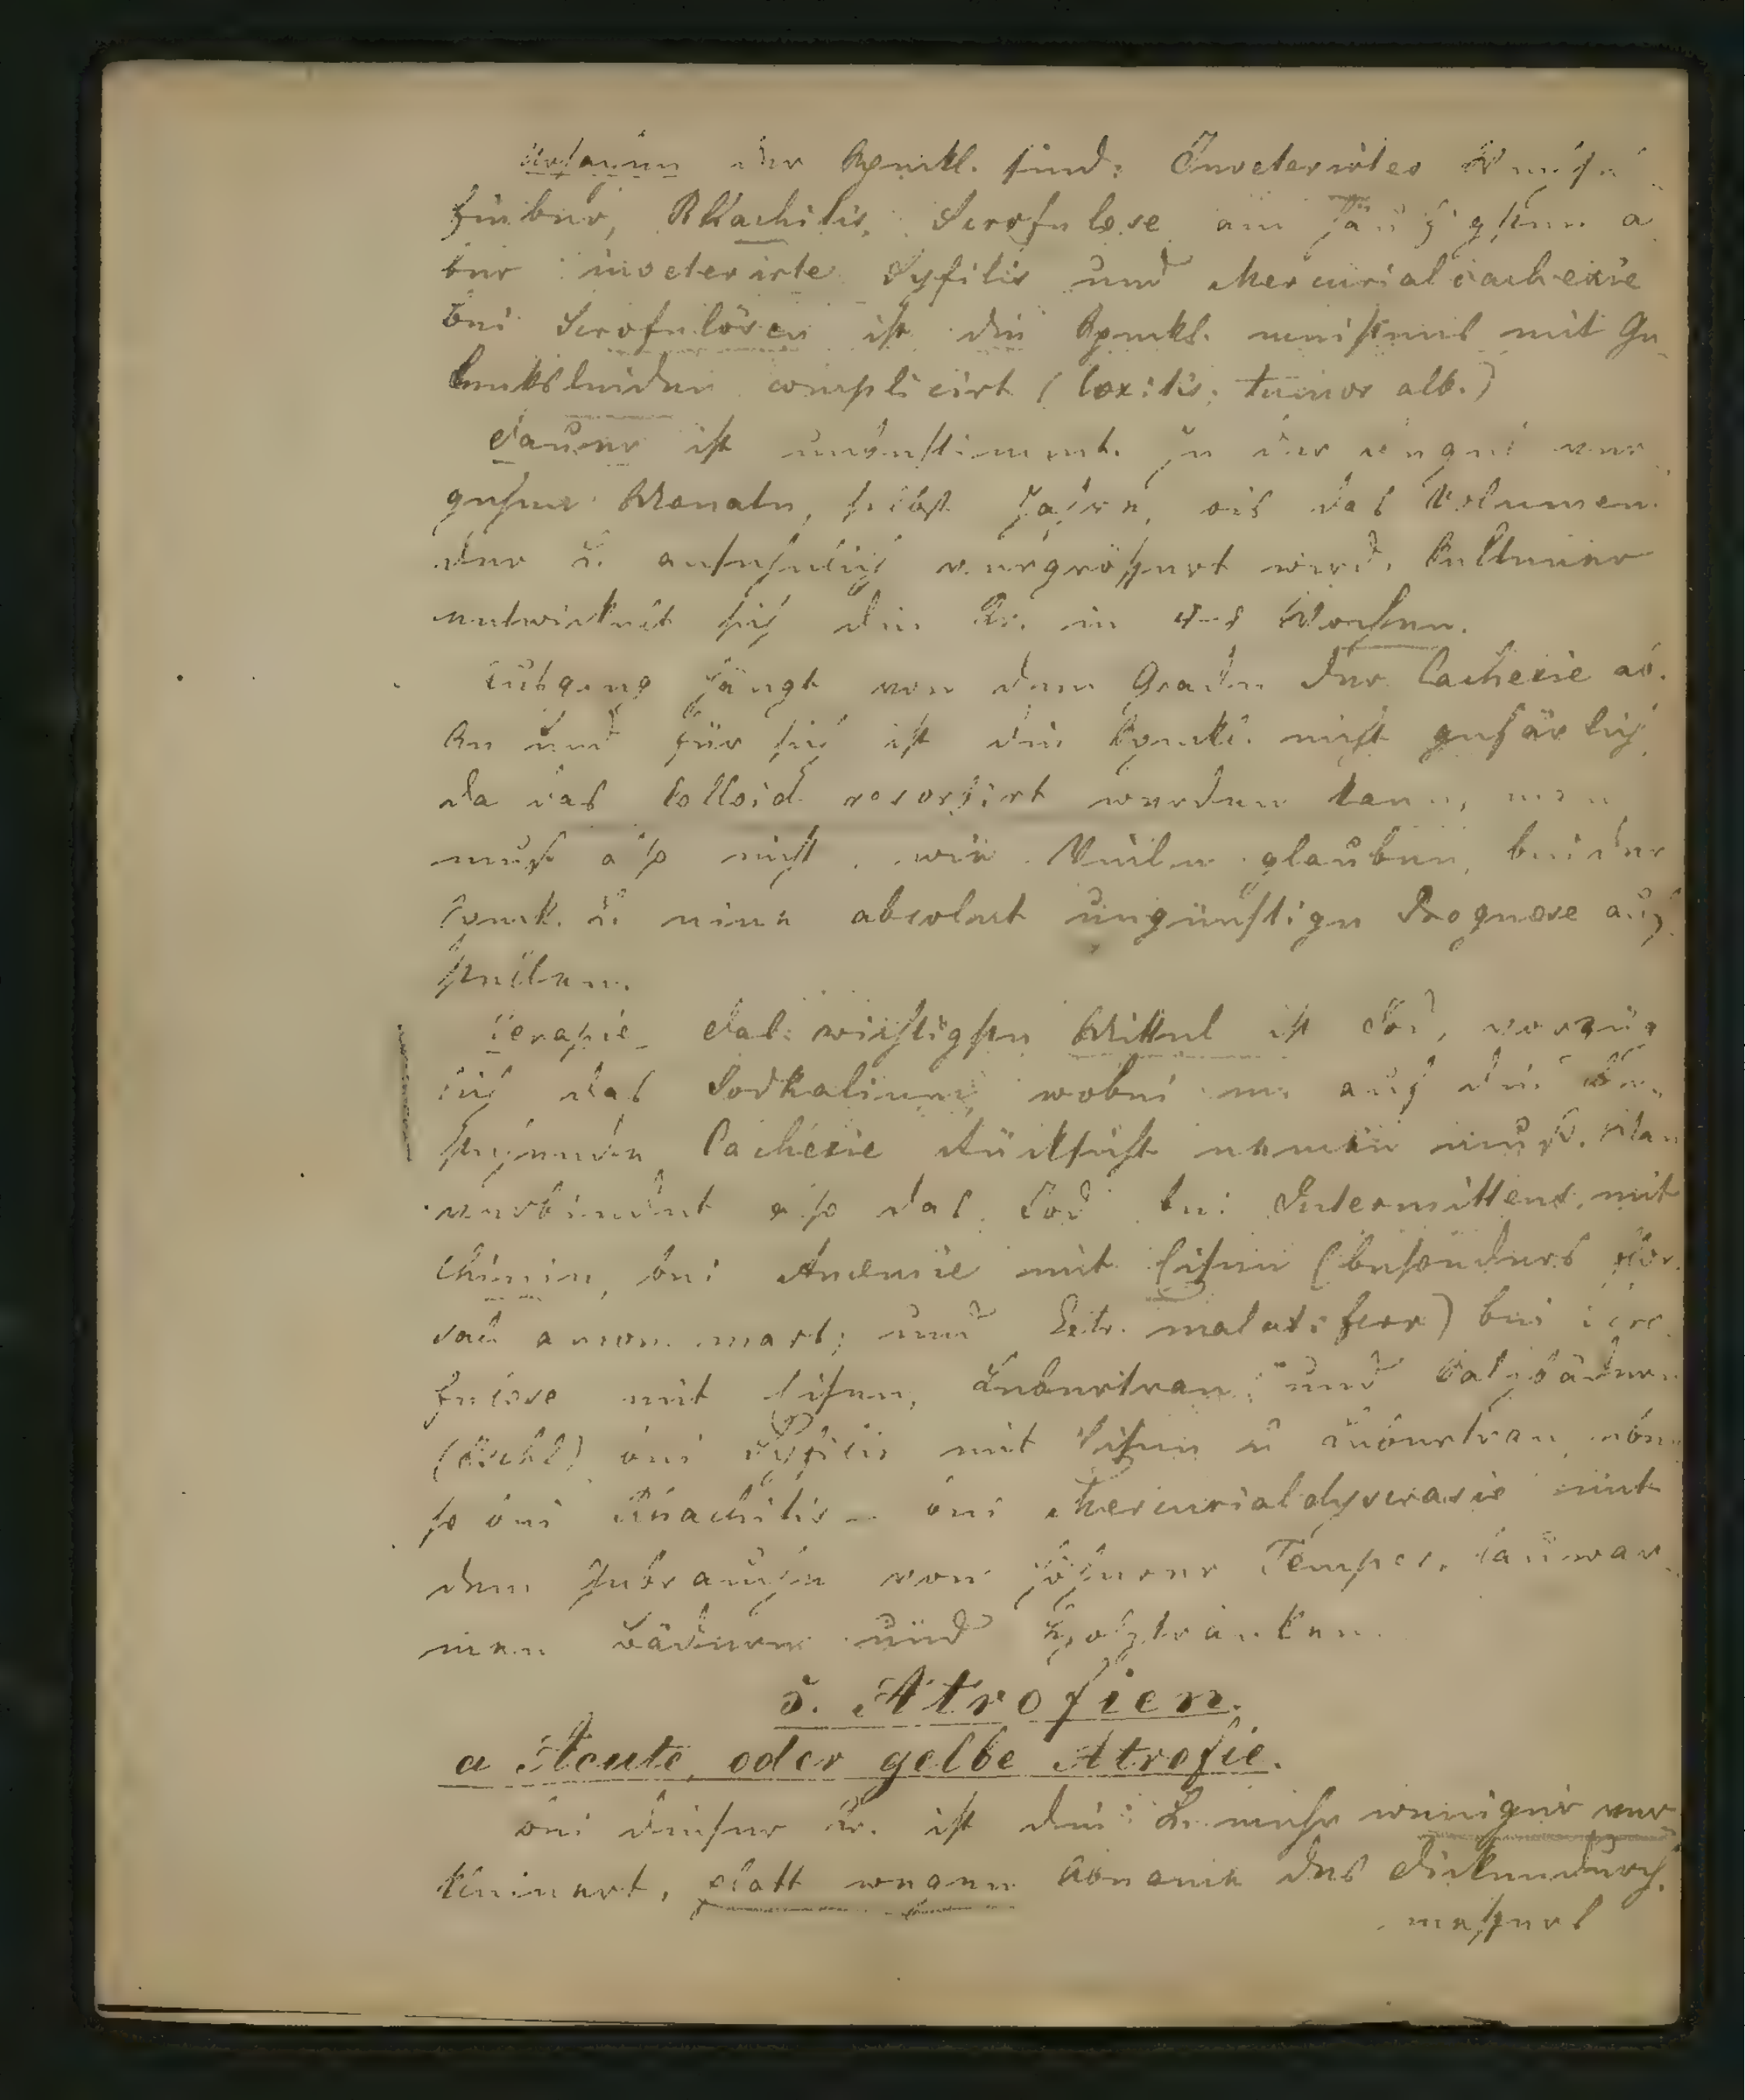 Ursachen der Speckl. sind: Inveterirtes Wechsel
fieber, Rhachitis, Scrofulose am häufigsten a
ber inveterirte Syfilis und Mercurialcachexie
bei Scrofulösen ist die Speckl. meistens mit Ge
lenksleiden complicirt (Coxitis, tumor alb.)
Dauer ist unbestimmt. In der Regel ver
gehen Monate, selbst Jahre, bis das Volumen
der L. ansehnlich vergrößert wird. Seltener
entwickelt sich die Kr. in Wochen.
Ausgang hängt von dem Grade der Cachexie ab.
An und für sich ist die Speckl. nicht gefärlich,
da das Colloid resorbirt werden kann, man
muß also nicht, wie Viele glauben, bei der
Speck. L. eine absolut ungünstige Prognose auf
stellen.
Terapie Das wichtigste Mittel ist Jod, vorzüg
lich das Jodkalium, wobei m. auf die be
stehende Cachexie Rücksicht nemen muß. Man
verbindet also das Jod bei Intermittens mit
Chinin, bei Anämie mit Eisen (besonders
sal amon. mart; und Extr. malat. ferr) bei Scro
fulose mit Eisen, Lebertran und Salzbädern
(Ischl) bei Syfilis mit Eisen u Lebertran eben
so bei Rhachitis – bei Mercurialdyscrasie mit
dem Gebrauche von höherer Temper. lauwar
men Bädern und Holztränken.
5. Atrofien.
a Acute oder gelbe Atrofie.
Bei dieser Kr. ist die L. mehr weniger ver
kleinert, platt wegen Abname des Dickendurch
messers